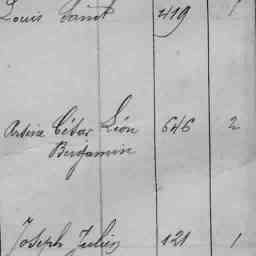 Louis 419 1
César Léon 646 2
Benjamin
Joseph Julien 121 1